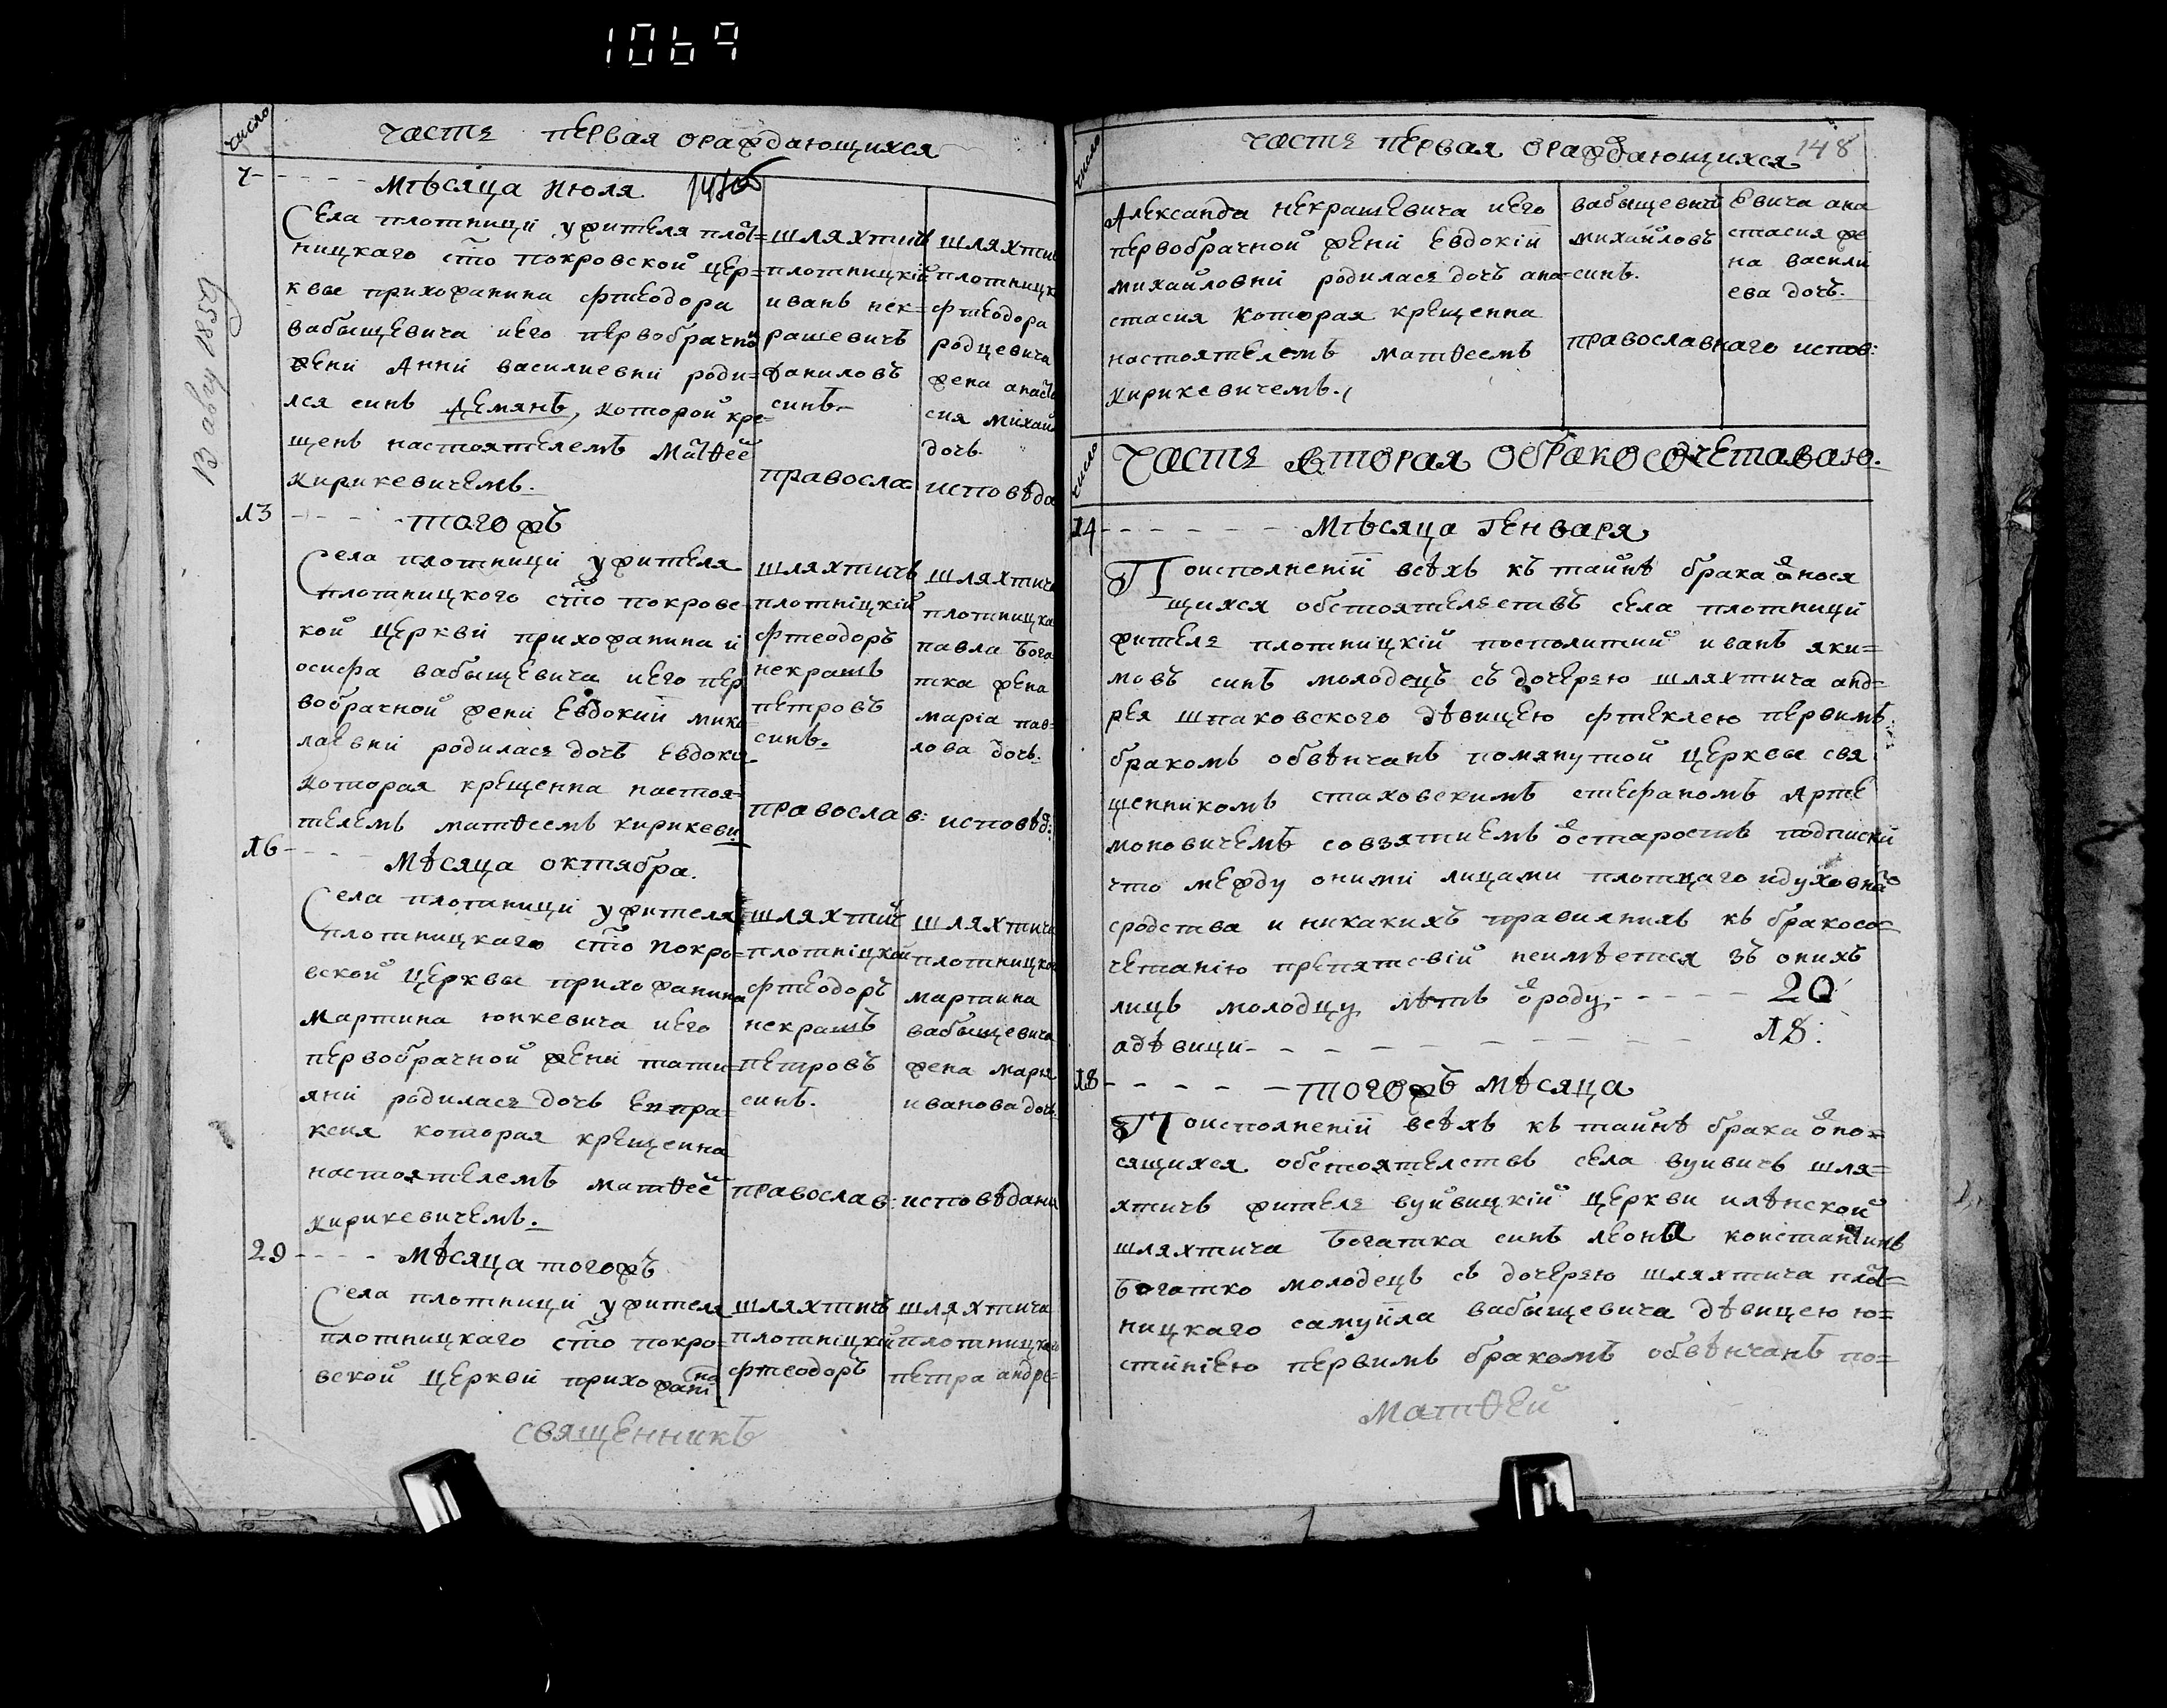 1069
число
Часть первая ораждающихся
7
Мѣсяца Июля
Села плотници ужителя плот=
ницкаго сто покровской цер=
квы прихожанина фтеодора
вабыщевича иего первобрачно
жени Анни василиевни роди=
лся синъ Демянъ, которой кре=
щенъ настоятелемъ Матѳее
кирикевичемъ.
шляхтичъ
плотницкій
иванъ нек=
рашевичъ
даниловъ
синъ
правосла:
шляхти
плотницк
фтеодора
родцевича
жена анаста
сия михай
дочь
исповѣда
В авгу 1859
13
тогожъ
Села плотници ужителя
плотницкого сто покровс=
кой церкви прихожанина й
осифа вабыщевича иего пер
вобрачной жени Евдокий мико
лаевни родилася дочъ евдоки
которая крещенна настоя=
телемъ матѳеемъ кирикеви
шляхтичъ
плотніцкій
фтеодоръ
некрашъ
петровъ
синъ.
православ:
шляхтич
плотницка
павла Бога
тка жена
маріа пав=
лова дочь.
исповѣд:
16
Мѣсяца октября.
Села плотници ужителя
плотницкаго сто покро=
вской церквы прихожанина
мартина юнкевича иего
первобрачной жени тати=
яни родилася дочь Епра=
ксия которая крещенна
настоятелемъ матѳее
кирикевичемъ.
шляхтич
плотніцкій
фтеодоръ
некрашъ
петровъ
синъ.
православ:
шляхтича
плотницко
мартина
вабыщевича
жена мария
иванова дочь
исповѣдани
29
Мѣсяца тогожъ
Села плотници ужителя
плотницкаго сто покро=
вской церкви прихожани на
шляхтичъ
плотніцкій
фтеодоръ
шляхтича
плотницкого
петра андре=
священникъ
число
Часть первая ораждающихся
148
Александа некрашевича иего
первобрачной жени Евдокій
михайловни родилася дочъ ана=
стасия которая крещенна
настоятелемъ матѳеемъ
кирикевичемъ.
вабыщевий
михайловъ
синъ.
православнаго испов:
евича ана
стасия же
на васили
ева дочъ.
число
Часть вторая обракосочетаваю.
14
Мѣсяца Генваря
Поисполненій всѣхъ къ тайнѣ брака онося
щихся обстоятельствъ села плотници
житель плотницкій посполитий иванъ яки=
мовъ синъ молодецъ съ дочерью шляхтича анд=
рея шпаковского дѣвицею фтеклею первимъ
бракомъ обвѣнчанъ помянутой церквы свя
щенникомъ стаховскимъ стефаномъ Арте
моновичемъ совзятиемъ остаростъ подписки
что между оними лицами плотцаго идуховнаго
сродства и никакихъ правилнихъ къ бракосо=
четанію препятсвій неимѣется зъ онихъ
лицъ молодцу лѣтъ ороду 20
адѣвици 18:
18
тогожъ мѣсяца
Поисполненій всѣхъ къ тайнѣ брака оно=
сящихся обстоятелствъ села вуивичъ шля=
хтичъ житель вуйвицкій церкви илѣнской
шляхтича Богатка синъ леона константинъ
Богатко молодецъ съ дочерью шляхтича плот=
ницкаго самуйла вабыщевича дѣвицею ю=
стйніею первимъ бракомъ обвѣнчанъ по=
Матѳей